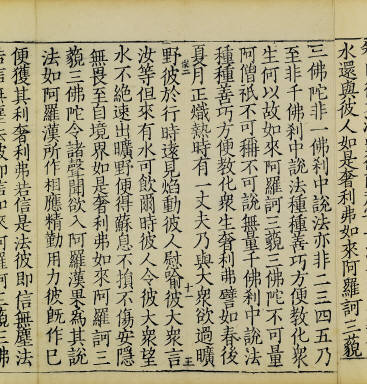 水還與彼人如是奢利弗如來阿羅訶三藐
三佛陀非一佛刹中說法亦非二三四五乃
至非千佛刹中說法種種善巧方便教化衆
生何以故如來阿羅訶三藐三佛陀不可量
阿僧祇不可稱不可說無量千佛刹中說法
種種善巧方便教化衆生奢利弗譬如春後
夏月正熾熱時有一丈夫乃與大衆欲過曠
十一 王
野彼於行時遙見焰動彼人慰喻彼大衆言
汝等但來有水可飲爾時彼人令彼大衆望
水不絕速出曠野便得蘇息不損不傷安隱
無畏至自境界如是奢利弗如來阿羅訶三
藐三佛陀令諸聲聞欲入阿羅漢界爲其說
法如阿羅漢所作相應精勤用力彼旣作已
便獲其利奢利弗若信是法彼即信無塵法
若信無塵法彼即信如來阿羅訶三藐三佛